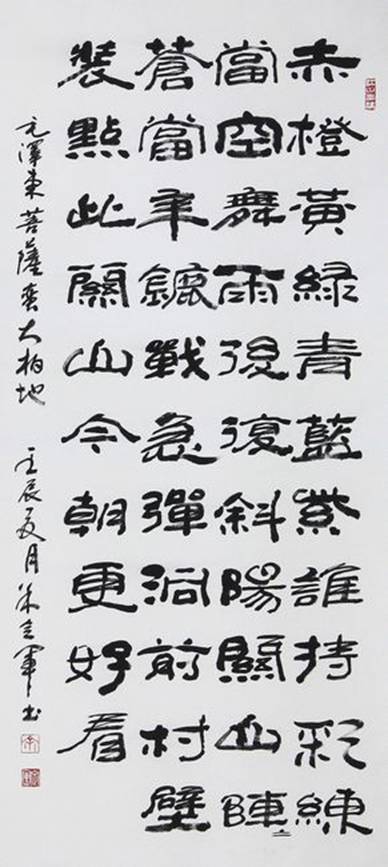 赤橙黃綠青藍紫誰持彩練
當空舞雨後復斜陽關山陣〻
蒼當年鏖戰急彈洞前村壁
裝點此關山今朝更好看
毛澤東菩薩蠻大柏地 壬辰夏月朱立軍書